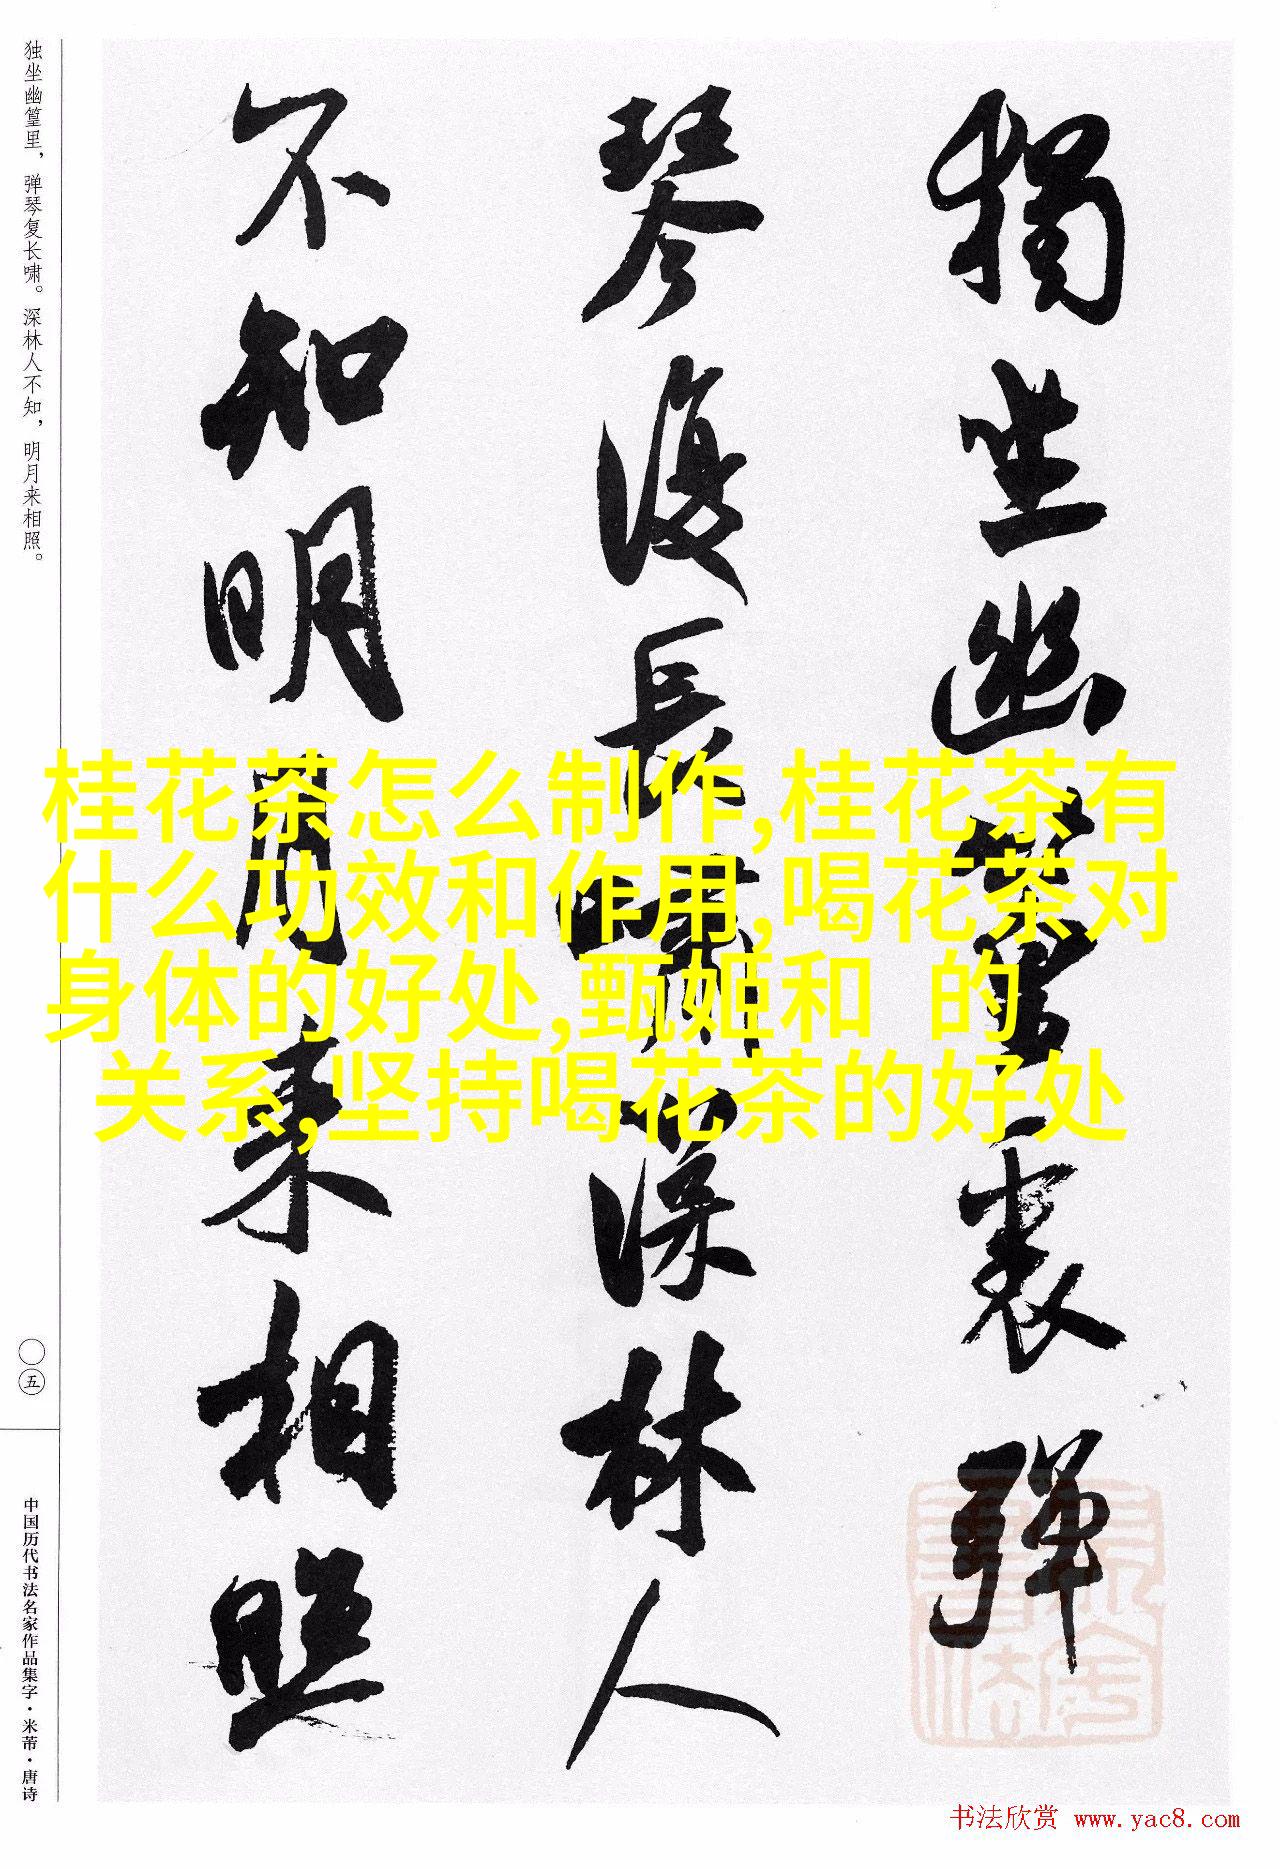 獨坐幽篁裏彈
琴復長嘯深林人
不知明月来相照
独坐幽篁里，弹琴复长啸。深林人不知，明月来相照。
〇五
中国历代书法名家作品集字·米芾·唐诗
桂花茶怎么制作,桂花茶有
什么功效和作用,喝花茶对
身体的好处,甄姬和 的
关系,坚持喝花茶的好处
书法欣赏 www.yac8.com